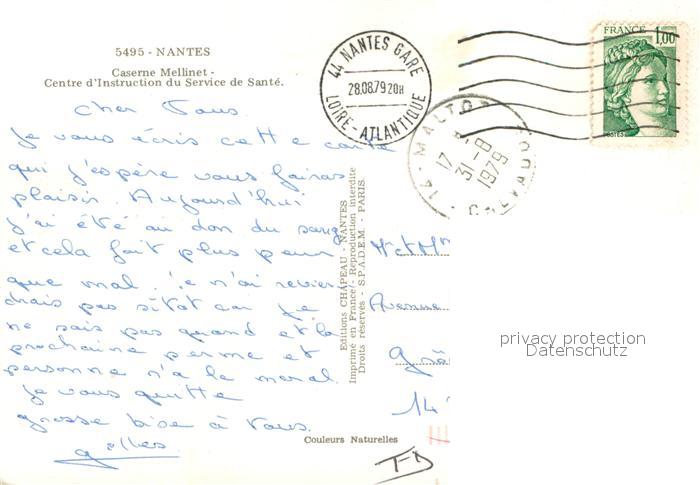 5495 - NANTES
Caserne Mellinet -
Centre d'Instruction du Service de Santé.
44 NANTES GARE
28.08.79 20H
LOIRE - ATLANTIQUE
FRANCE 1,00
POSTES
14 - MALTOT
17 H
31-8
1979
CALVADOS
cher Tous
Je vous écris cette carte
qui j'espère vous fairas
plaisir. Aujourd'hui
j'ai été au don du sang
et cela fait plus peur
que mal. Je n'ai revien-
drais pas sitot car je
ne sais pas quand et la
prochaine perme et
personne n'a le moral.
Je vous quitte
grosse bise à Tous.
gilles
Editions CHAPEAU - NANTES
Imprimé en France - Reproduction interdite
Droits réservés - S.P.A.D.E.M. - PARIS.
M et Mme
Avenue
14
Couleurs Naturelles
privacy protection
Datenschutz